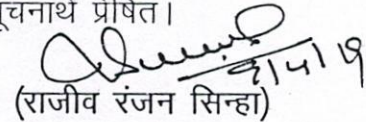 सूचनार्थ प्रेषित।
(राजीव रंजन सिन्हा)